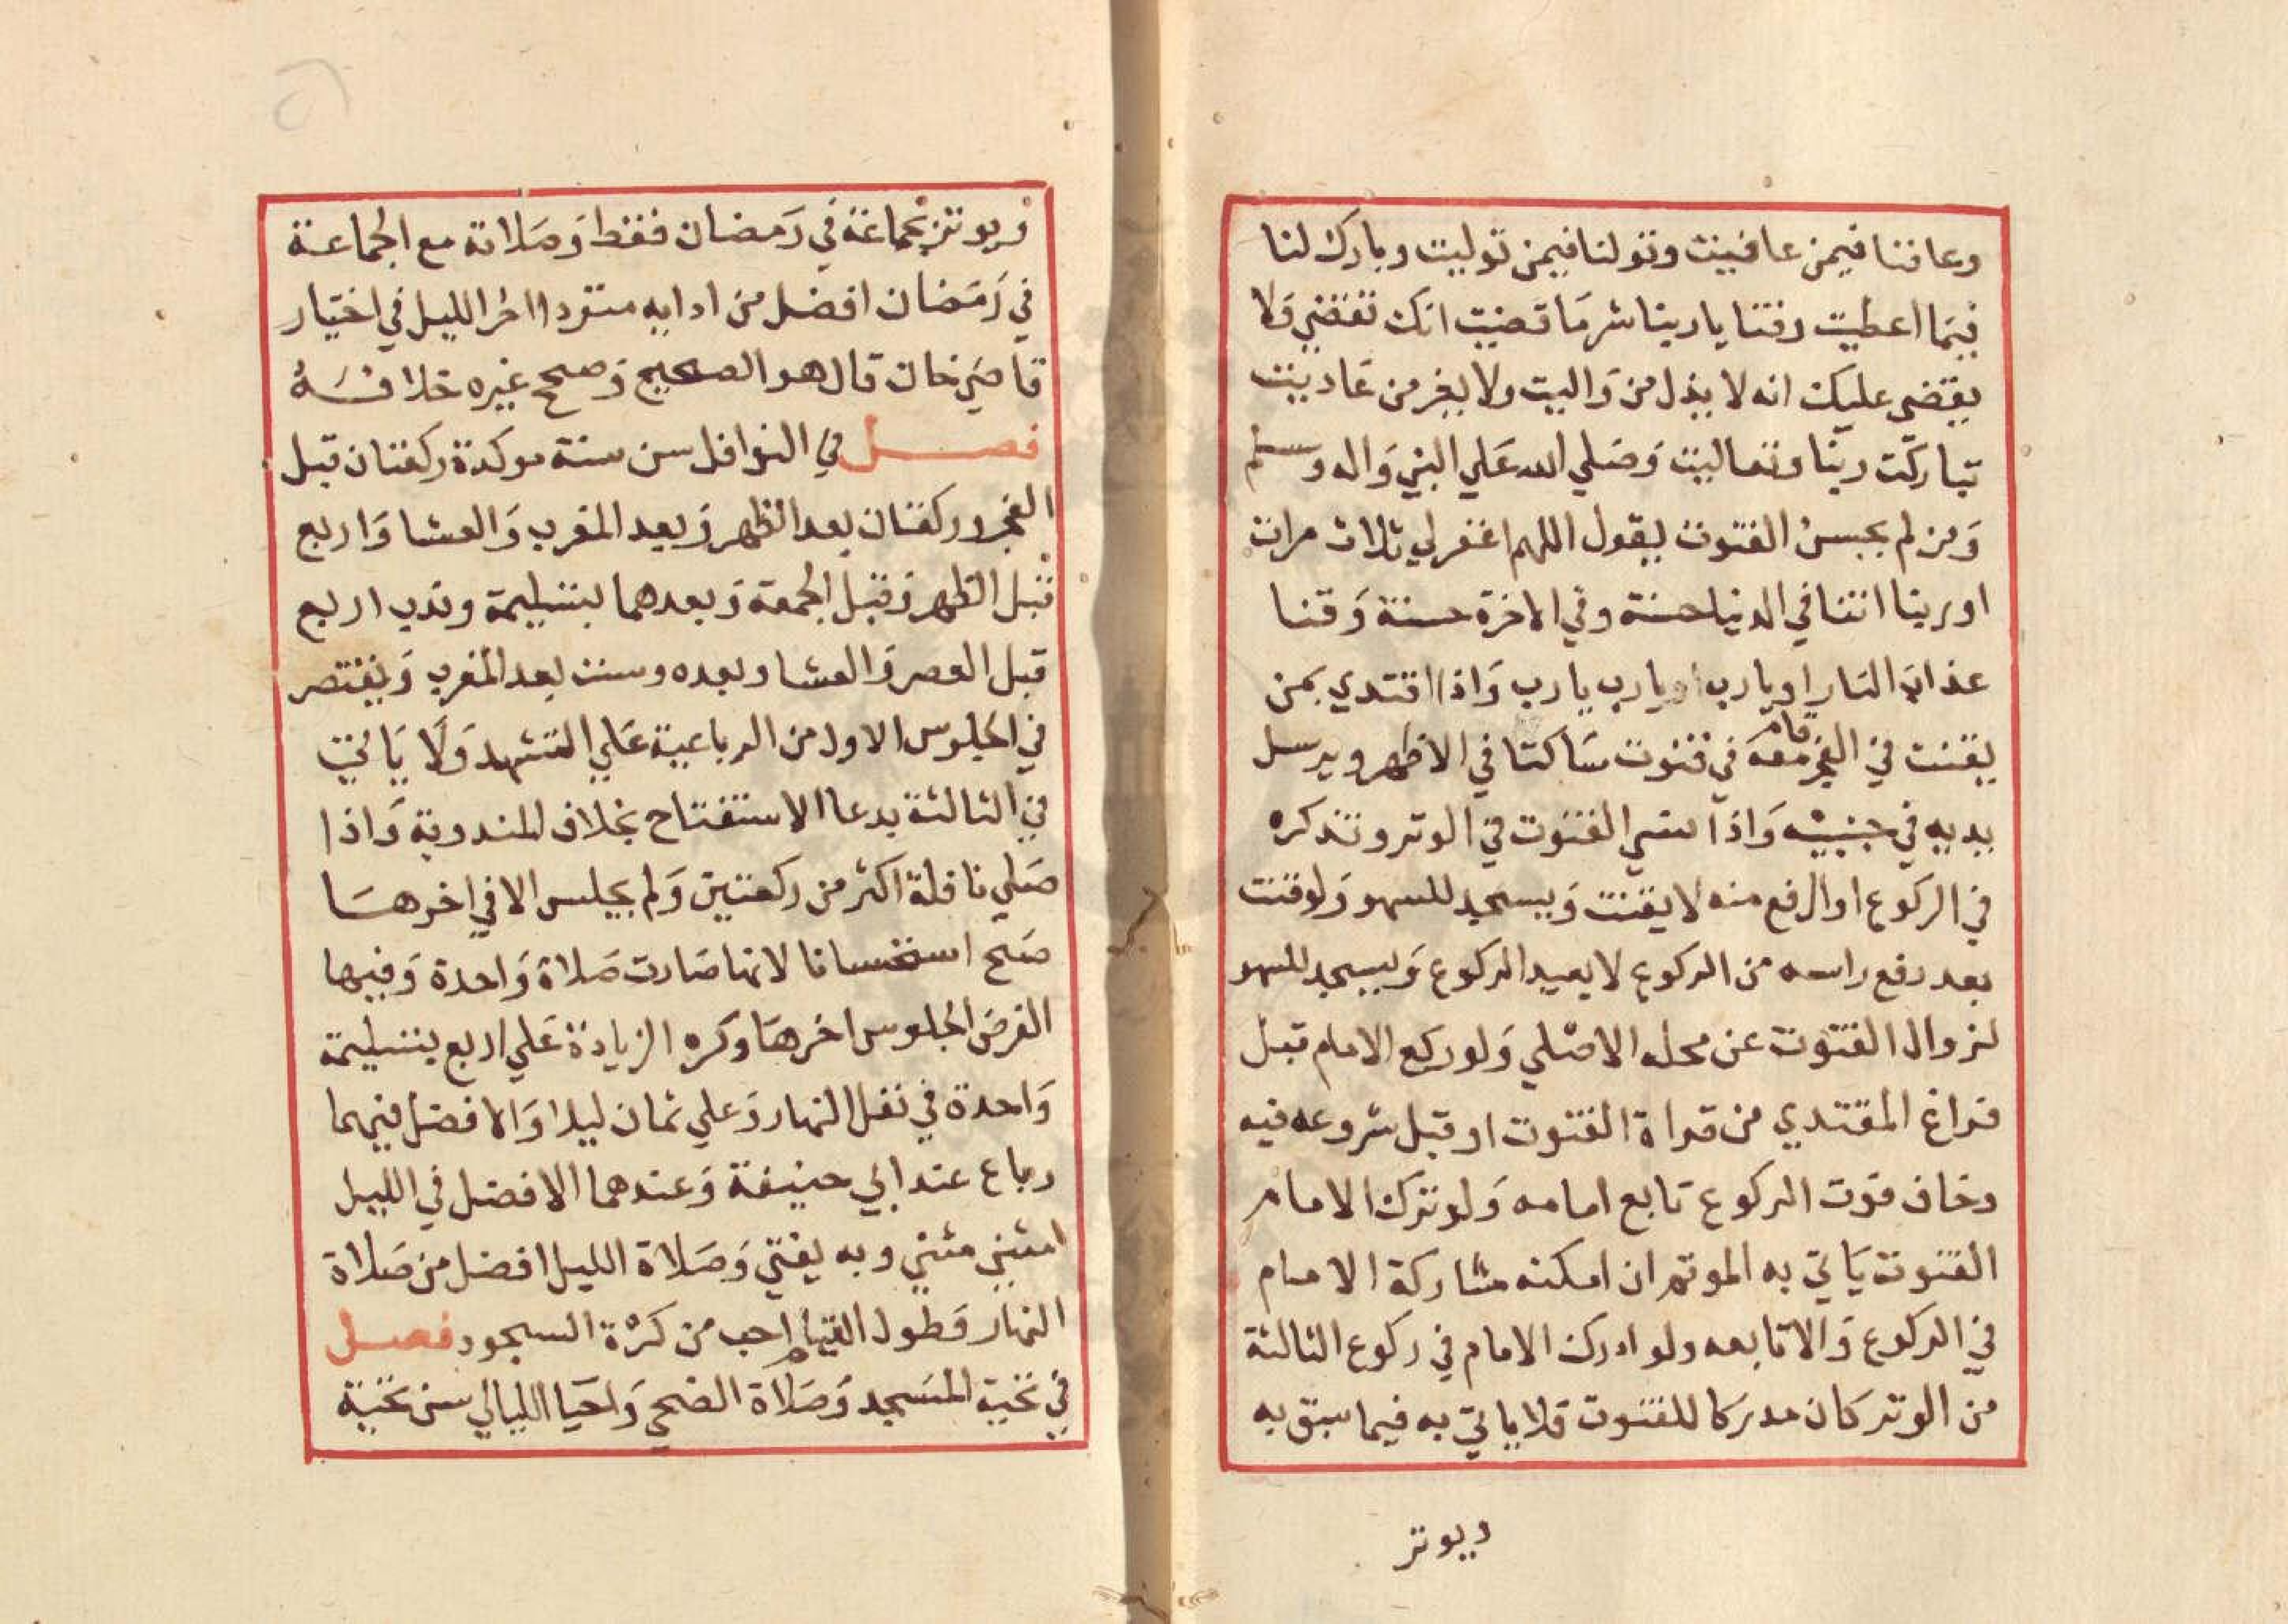 وعافنا فيمن عافيت وتولنا فيمن توليت وبارك لنا
فيما اعطيت وقنا يا ربنا شر ما قضيت انك تقضي ولا
يقضي عليك انه لا يذل من واليت ولا يعز من عاديت
تباركت ربنا وتعاليت وصلي الله علي النبي واله وسلم
ومن لم يحسن القنوت يقول اللهم اغفر لي ثلاث مرات
او ربنا اتنا في الدنيا حسنة وفي الاخرة حسنة وقنا
عذاب النار او يا رب او يا رب يا رب واذا اقتدي بمن
يقنت في الفجر قام معه في قنوت ساكتا في الاظهر ويرسل
يديه في جنبيه واذا نسي القنوت في الوتر وتذكره
في الركوع او الرفع منه لا يقنت ويسجد للسهو ولو قنت
بعد رفع راسه من الركوع لا يعيد الركوع ويسجد للسهو
لزوال القنوت عن محله الاصلي ولو ركع الامام قبل
فراغ المقتدي من قراة القنوت او قبل شروعه فيه
وخاف فوت الركوع تابع امامه ولو ترك الامام
القنوت ياتي به الموتم ان امكنه مشاركة الامام
في الركوع والا تابعه ولو ادرك الامام في ركوع الثالثة
من الوتر كان مدركا للقنوت فلا ياتي به فيما سبق به
ويوتر
ويوتر بجماعة في رمضان فقط وصلاته مع الجماعة
في رمضان افضل من ادايه منفردا اخر الليل في اختيار
قاضي خان قال هو الصحيح وصحح غيره خلافه
فصل في النوافل سن سنة موكدة ركعتان قبل
الفجر وركعتان بعد الظهر وبعد المغرب والعشا واربع
قبل الظهر وقبل الجمعة وبعدهما بتسليمة وندب اربع
قبل العصر والعشا وبعده وست بعد المغرب ويقتصر
في الجلوس الاول من الرباعية علي التشهد ولا ياتي
في الثالثة بدعا الاستفتاح بخلاف المندوبة واذا
صلي نافلة اكثر من ركعتين ولم يجلس الا في اخرها
صح استحسانا لانها صارت صلاة واحدة وفيها
الفرض الجلوس اخرها وكره الزيادة علي اربع بتسليمة
واحدة في نفل النهار وعلي ثمان ليلا والافضل فيهما
رباع عند ابي حنيفة وعندهما الافضل في الليل
مثني مثني وبه يفتي وصلاة الليل افضل من صلاة
النهار وطول القيام احب من كثرة السجود فصل
في تحية المسجد وصلاة الضحي واحيا الليالي سن تحية